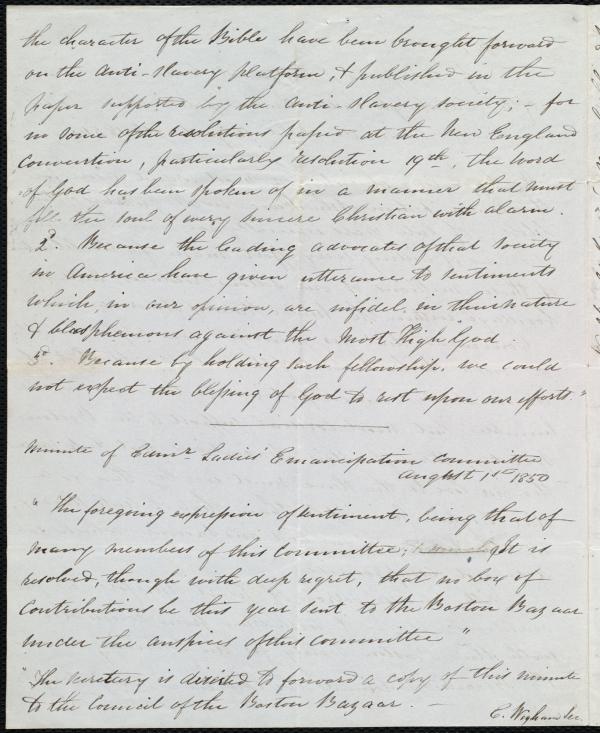 the character of the Bible have been brought forward
on the Anti-Slavery platform, & published in the
paper supported by the Anti-Slavery society; - for
in some of the resolutions passed at the New England
Convention, particularly resolution 19th, the word
of God has been spoken of in a manner that must
fill the soul of every sincere Christian with alarm.
2d. Because the leading advocates of that Society
in America have given utterance to sentiments
which, in our opinion, are infidel in their nature
& blasphemous against the Most High God
3d. Because by holding such fellowship, we could
not expect the blessing of God to rest upon our efforts."
Minute of Edinr. Ladies' Emancipation Committee
August 1st 1850
"The foregoing expression of sentiment, being that of
many members of this Committee; It is
resolved, though with deep regret, that no box of
Contributions be this year sent to the Boston Bazaar
under the auspices of this committee"
"The secretary is directed to forward a copy of this minute
to the Council of the Boston Bazaar. -
E. Wigham Sec.